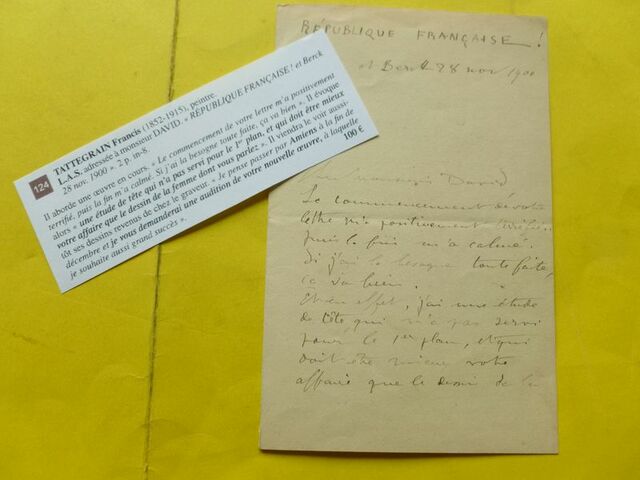 124
TATTEGRAIN Francis (1852-1915), peintre.
L.A.S. adressée à monsieur DAVID. « RÉPUBLIQUE FRANÇAISE ! et Berck
28 nov. 1900 ». 2 p. in-8.
Il aborde une œuvre en cours. « Le commencement de votre lettre m'a positivement
terrifié, puis la fin m'a calmé. Si j'ai la besogne toute faite, ça va bien ». Il évoque
alors « une étude de tête qui n'a pas servi pour le 1er plan, et qui doit être mieux
votre affaire que le dessin de la femme dont vous parlez ». Il viendra le voir aussi-
tôt ses dessins revenus de chez le graveur. « Je pense passer par Amiens à la fin de
décembre et je vous demanderai une audition de votre nouvelle œuvre, à laquelle
je souhaite aussi grand succès ».
100 €
RÉPUBLIQUE FRANÇAISE !
et Berck 28 nov 1900
David
Le commencement de votre
lettre m'a positivement terrifié,
puis la fin m'a calmé.
Si j'ai la besogne toute faite,
ça va bien.
Et en effet, j'ai une étude
de tête qui n'a pas servi
pour le 1er plan, et qui
doit être mieux votre
affaire que le dessin de la